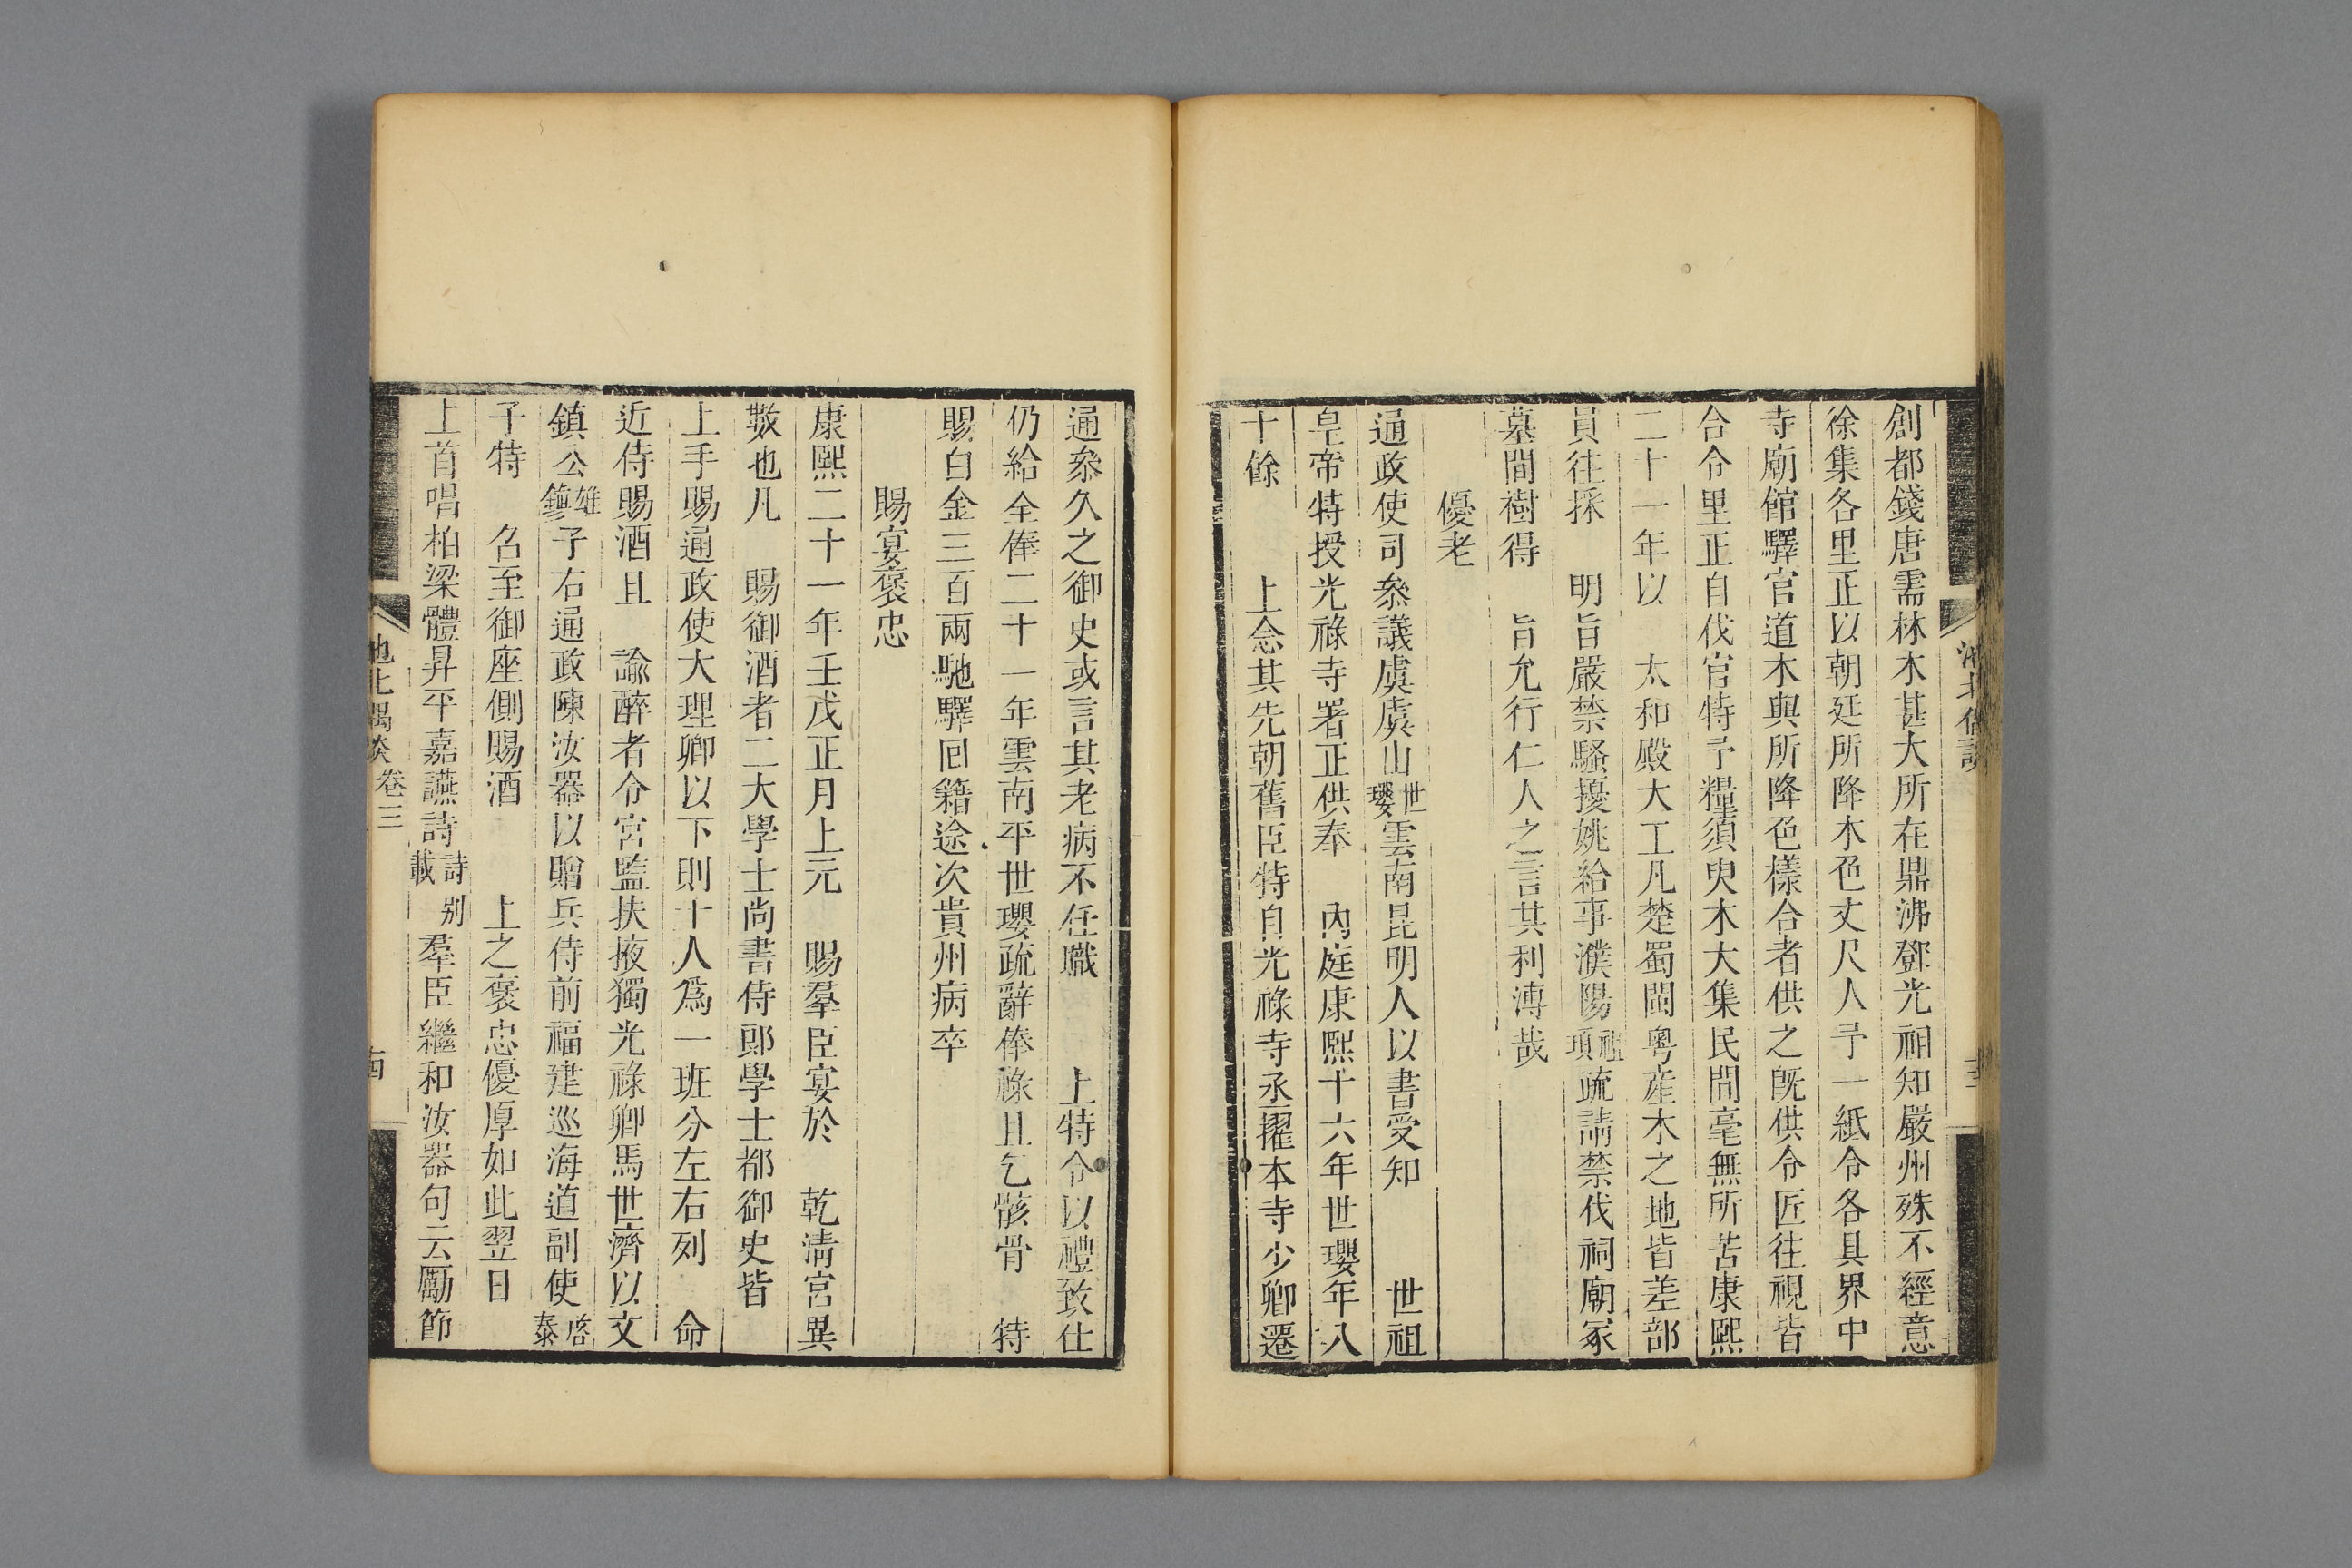 創都錢唐需林木甚大所在鼎沸鄧光祖知嚴州殊不經意
徐集各里正以朝廷所降木色丈尺人予一紙令各具界中
寺廟館驛官道木與所降色樣合者供之旣供令匠往視皆
合令里正自伐官特予糧須臾木大集民間毫無所苦康熙
二十一年以 太和殿大工凡楚蜀閩粵産木之地皆差部
員往採 明旨嚴禁騷擾姚給事濮陽祖項疏請禁伐祠廟冢
墓間樹得 旨允行仁人之言其利溥哉
優老
通政使司叅議虞虞山世瓔雲南昆明人以書受知 世祖
皇帝特授光祿寺署正供奉 內庭康熙十六年世瓔年八
十餘 上念其先朝舊臣特自光祿寺丞擢本寺少卿遷
通叅久之御史或言其老病不任職 上特令以禮致仕
仍給全俸二十一年雲南平世瓔疏辭俸祿且乞骸骨 特
賜白金三百兩馳驛回籍途次貴州病卒
賜宴褒忠
康熙二十一年壬戌正月上元 賜羣臣宴於 乾淸宮異
數也凡 賜御酒者二大學士尚書侍郎學士都御史皆
上手賜通政使大理卿以下則十人爲一班分左右列 命
近侍賜酒且 諭醉者令宮監扶掖獨光祿卿馬世濟以文
鎮公雄鎮子右通政陳汝器以贈兵侍前福建巡海道副使啓泰
子特 名至御座側賜酒 上之褒忠優厚如此翌日
上首唱柏梁體昇平嘉讌詩詩別載羣臣繼和汝器句云勵節
卷三